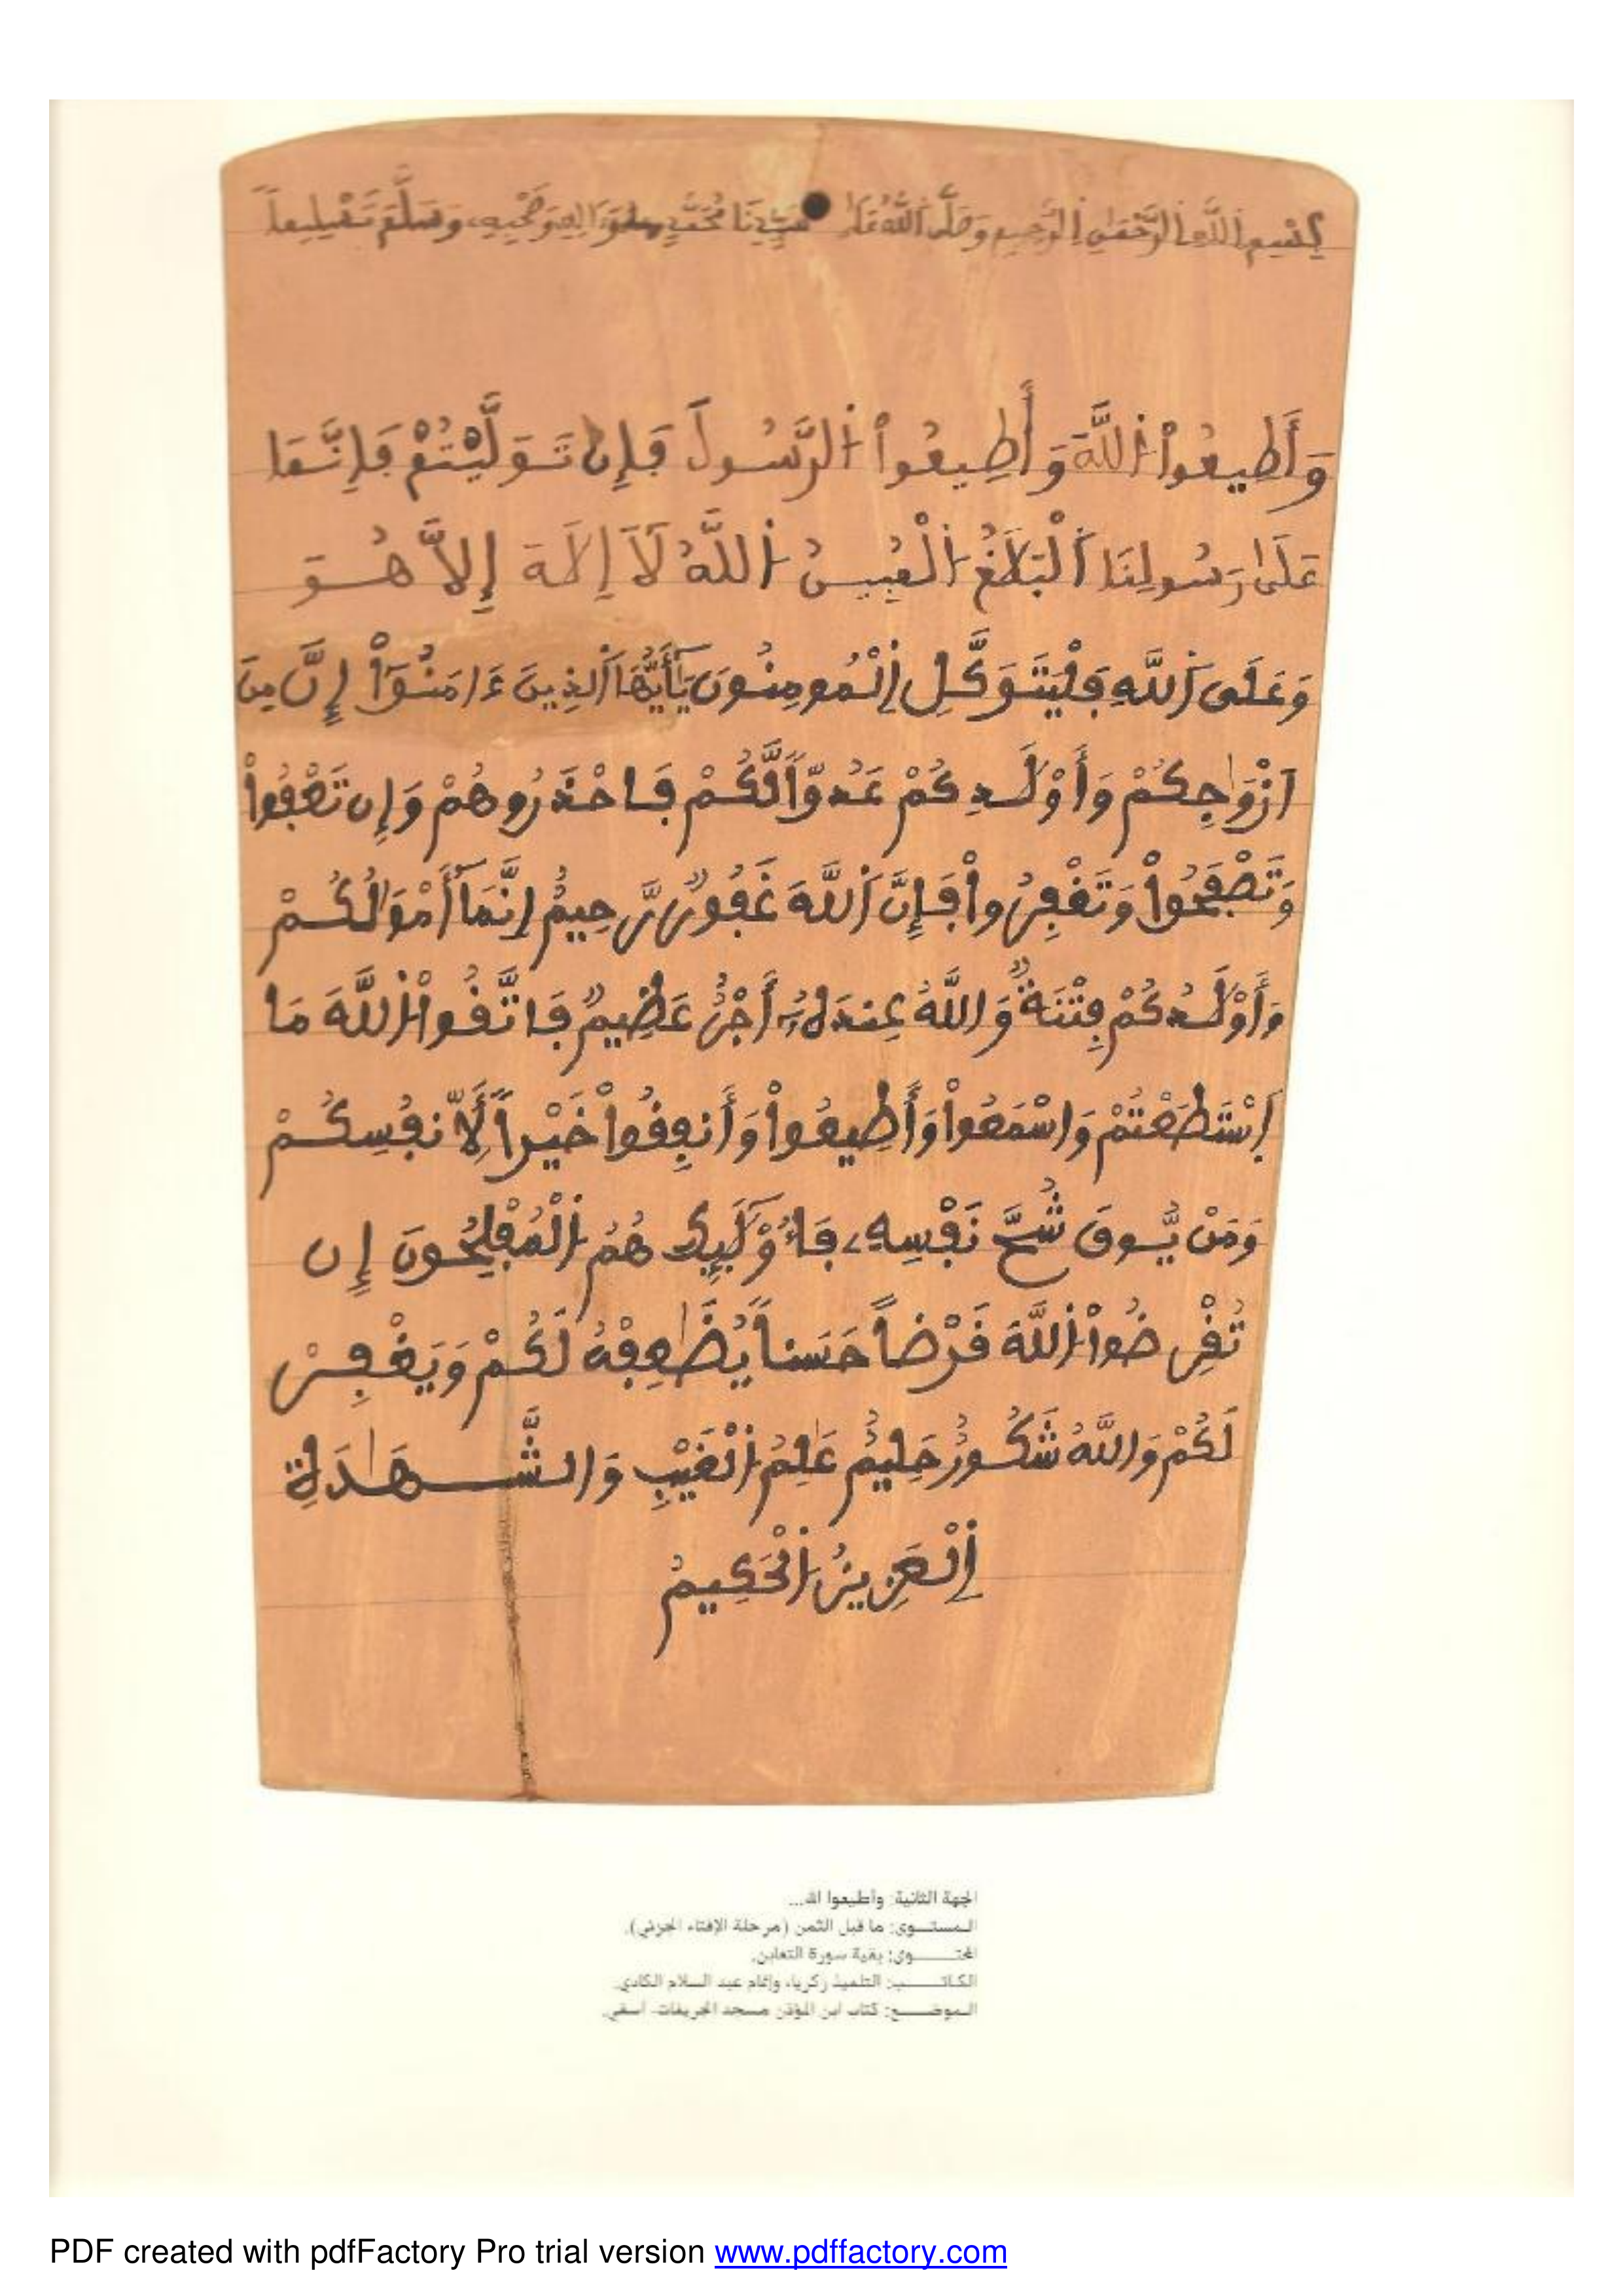 بِسْمِ اللَّهِ الرَّحْمَٰنِ الرَّحِيمِ وَصَلَّى اللَّهُ عَلَىٰ سَيِّدِنَا مُحَمَّدٍ وَءَالِهِ وَصَحْبِهِ وَسَلَّمَ تَسْلِيماً
وَأَطِيعُوا۟ اُللَّهَ وَأَطِيعُوا۟ اُلرَّسُولَ فَإِن تَوَلَّيْتُمْ فَإِنَّمَا
عَلَىٰ رَسُولِنَا اَلْبَلَٰغُ اُلْمُبِينُ اُللَّهُ لَآ إِلَٰهَ إِلَّا هُوَ
وَعَلَى اَللَّهِ فَلْيَتَوَكَّلِ اِلْمُومِنُونَ يَٰٓأَيُّهَا اَلذِينَ ءَامَنُوٓا۟ إِنَّ مِنَ
اَزْوَٰجِكُمْ وَأَوْلَٰدِكُمْ عَدُوّاً لَّكُمْ فَاحْذَرُوهُمْ وَإِن تَعْفُوا۟
وَتَصْفَحُوا۟ وَتَغْفِرُوا۟ فَإِنَّ اَللَّهَ غَفُورٌ رَّحِيمٌ إِنَّمَآ أَمْوَٰلُكُمْ
وَأَوْلَٰدُكُمْ فِتْنَةٌ وَاللَّهُ عِندَهُۥٓ أَجْرٌ عَظِيمٌ فَاتَّقُوا۟ اُللَّهَ مَا
اَسْتَطَعْتُمْ وَاسْمَعُوا۟ وَأَطِيعُوا۟ وَأَنفِقُوا۟ خَيْراً لِّأَنفُسِكُمْ
وَمَنْ يُّوقَ شُحَّ نَفْسِهِۦ فَأُو۟لَٰٓئِكَ هُمُ اُلْمُفْلِحُونَ إِن
تُقْرِضُوا۟ اُللَّهَ قَرْضاً حَسَناً يُضَٰعِفْهُ لَكُمْ وَيَغْفِرْ
لَكُمْ وَاللَّهُ شَكُورٌ حَلِيمٌ عَٰلِمُ اُلْغَيْبِ وَالشَّهَٰدَةِ
اِلْعَزِيزُ اُلْحَكِيمُ
الجهة الثانية: وأطيعوا الله...
المستوى: ما قبل الثمن (مرحلة الإفتاء الجزئي).
المحتوى: بقية سورة التغابن.
الكاتب: التلميذ زكرياء وإتمام عبد السلام الكادي.
الموضع: كتاب ابن المؤذن مسجد الجريفات- آسفي.
PDF created with pdfFactory Pro trial version www.pdffactory.com